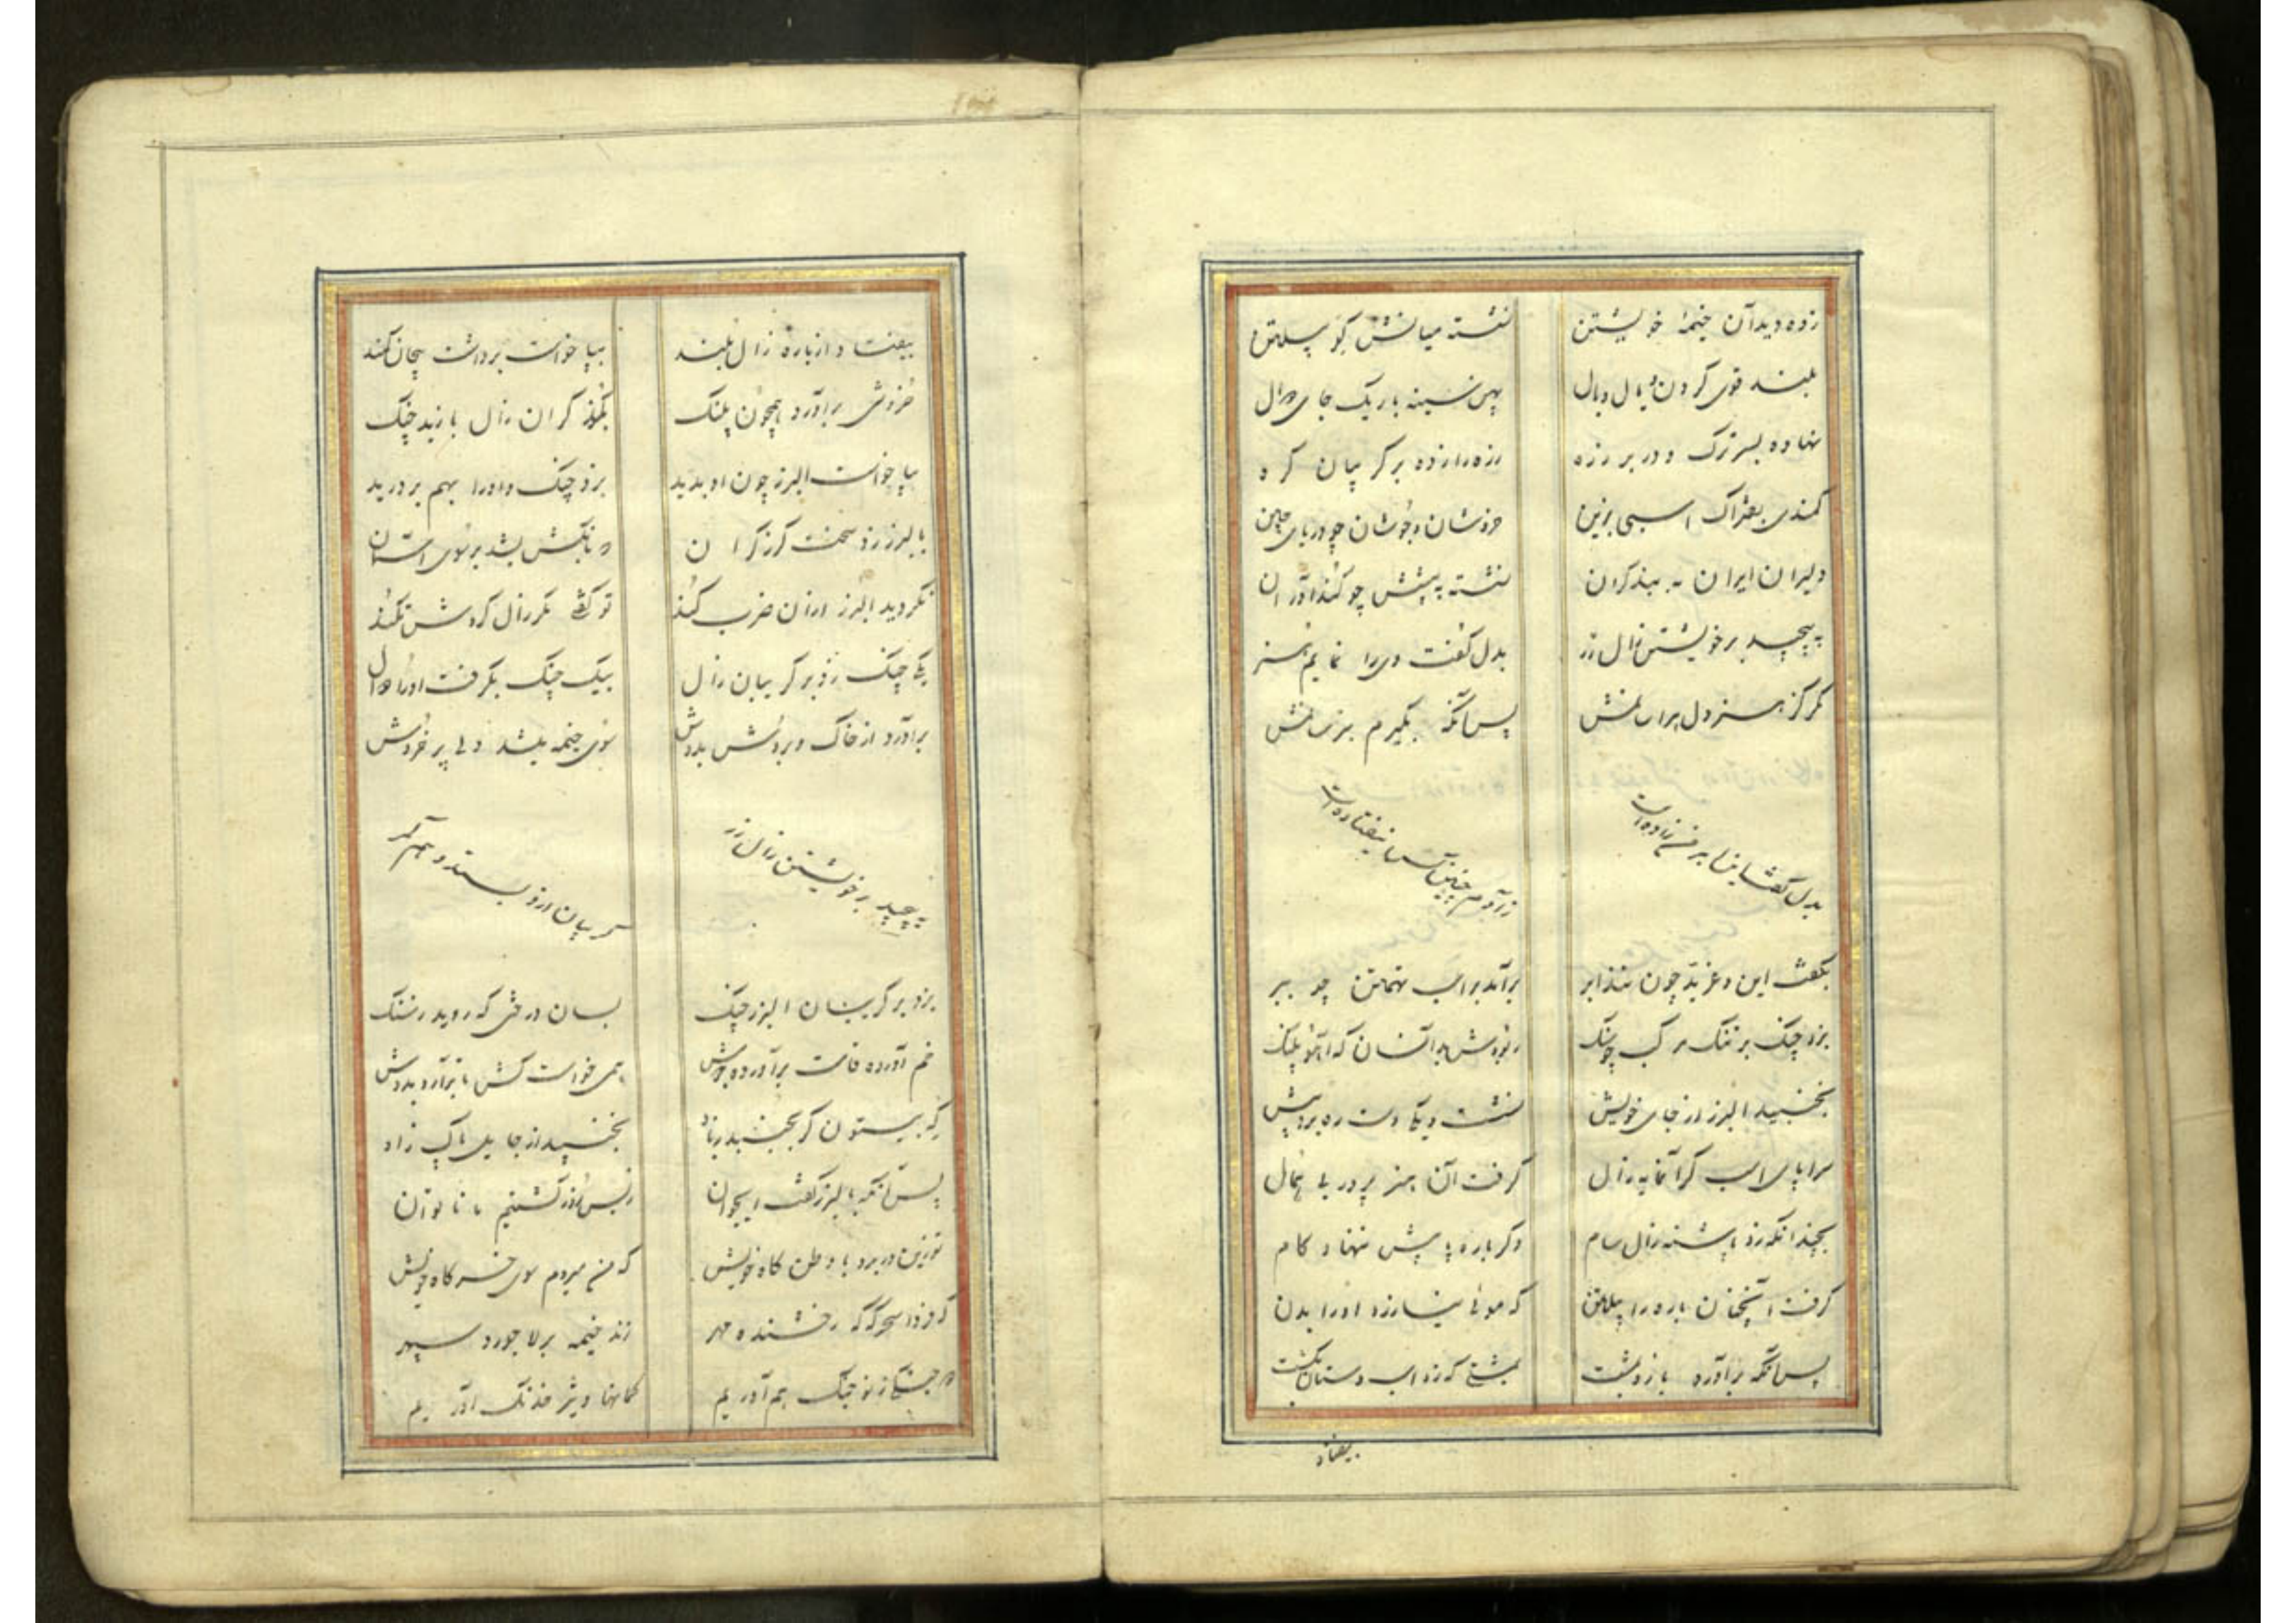 زده دید آن خیمهٔ خویشتن نشسته میانش گو پیلتن
بلند قوی گردن و یال و بال پهن سینه باریک جای دوال
نهاده بسر ترک و در بر زره زره را زده بر گریبان گره
کمندی بفتراک اسبی بزین خروشان و جوشان چو دریای چین
دلیران ایران به بند گران نشسته به پیشش چو کندآوران
به پیچید بر خویشتن زال زر بدل گفت وی را نمایم هنر
مگر کز هنر دل هراسانمش پس آنگه بگیرم بزندانمش
بدل گفت تا من ز مادر زاده‌ام
بگفت این و غرید چون تند ابر برآمد بر اسب تهمتن چو ببر
بزد چنگ بر تنگ مرکب چو سنگ ربودش بدانسان که آهو پلنگ
بجنبید البرز از جای خویش نشست و یکی دست ره برد پیش
سراپای اسب گرانمایه زال گرفت آن هنرپرور بی همال
بچندانکه زد پاشنه زال سام دگر باره پا پیش ننهاد گام
گرفت آنچنان باره را پیلتن که موئی نیارزد او را بدن
پس آنگه برآورد بازو بمشت بمشتی که زد اسب دستان بکشت
بیفتاد
بیفتاد از باره زال بلند بپا خواست برداشت پیچان کمند
خروشی برآورد همچون پلنگ بگرز گران زال یازید چنگ
بپا خواست البرز چون او بدید بزد چنگ و او را بهم بر درید
بالبرز زد سخت گرز گران که بانگش بشد بر سوی آسمان
نگردید البرز از آن ضرب کند تو گفتی مگر زال کردش نکند
یکی چنگ زد بر گریبان زال بیک چنگ بگرفت او را دوال
برآورد از خاک و بردش بدوش سوی خیمه بشد دلی پر خروش
به پیچید بر خویشتن زال زر
بزد بر گریبان البرز چنگ بسان درختی که روید ز سنگ
خم آورده قامت برآورده جوش همی خواست کش تا برآرد بدوش
که بیستون گر بجنبد ز باد بجنبید از جا یل پاک زاد
پس آنگه بالبرز گفت ای جوان ز بس زور گشتیم ما ناتوان
تو زین در برو با وطن گاه خویش که من میروم سوی خرگاه خویش
که فردا سحرگه که رخشنده مهر زند خیمه بر لاجورد سپهر
که جنگی ز نو جنگ هم آوریم کمانها و تیر خدنگ آوریم